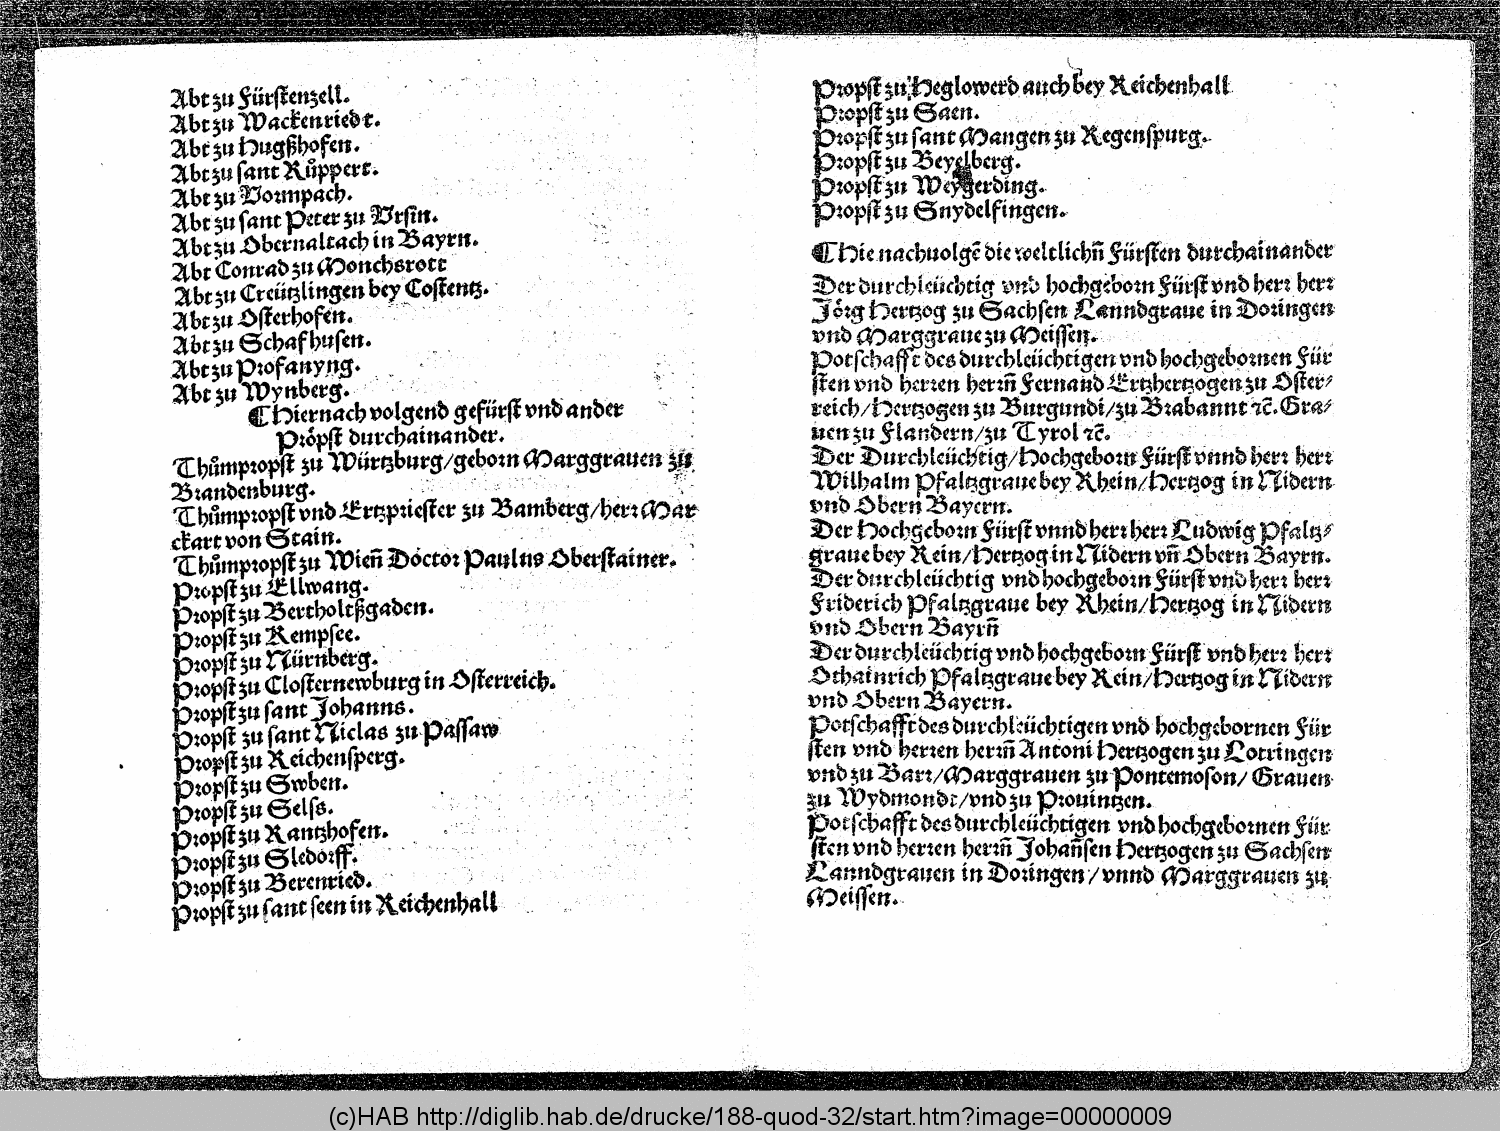 Abt zu Fürstenzell.
Abt zu Wackenriedt.
Abt zu Hugßhofen.
Abt zu sant Růppert.
Abt zu Vormpach.
Abt zu sant Peter zu Vrsin.
Abt zu Obernaltach in Bayrn.
Abt Conrad zu Monchsrott
Abt zu Creützlingen bey Costentz.
Abt zu Osterhofen.
Abt zu Schafhusen.
Abt zu Profanyng.
Abt zu Wynberg.
¶ Hiernach volgend gefürst vnd ander
Pröpst durchainander.
Thůmpropst zu Würtzburg/geborn Marggrauen zů
Brandenburg.
Thůmpropst vnd Ertzpriester zu Bamberg/herr Mar
ckart von Stain.
Thůmpropst zu Wien̄ Doctor Paulus Oberstainer.
Propst zu Ellwang.
Propst zu Bertholtßgaden.
Propst zu Kempsee.
Propst zu Nürnberg.
Propst zu Closternewburg in Osterreich.
Propst zu sant Johanns.
Propst zu sant Niclas zu Passaw
Propst zu Reichensperg.
Propst zu Swben.
Propst zu Selss.
Propst zu Rantzhofen.
Propst zu Sledorff.
Propst zu Berenried.
Propst zu sant seen in Reichenhall
Propst zu Heglowerd auch bey Reichenhall
Propst zu Saen.
Propst zu sant Mangen zu Regenspurg.
Propst zu Beyelberg.
Propst zu Weygerding.
Propst zu Snydelfingen.
¶ Hie nachuolgē die weltlichn̄ Fürsten durchainander
Der durchleüchtig vnd hochgeborn Fürst vnd herr herr
Jörg Hertzog zu Sachsen Lanndgraue in Doringen
vnd Marggraue zu Meissen.
Potschafft des durchleüchtigen vnd hochgebornen Für
sten vnd herren herrn̄ Fernand Ertzhertzogen zu Oster⸗
reich/Hertzogen zu Burgundi/zu Brabannt ꝛc̄. Gra⸗
uen zu Flandern/zu Tyrol ꝛc̄.
Der Durchleüchtig/Hochgeborn Fürst vnnd herr herr
Wilhalm Pfaltzgraue bey Rhein/Hertzog in Nidern
vnd Obern Bayern.
Der Hochgeborn Fürst vnnd herr herr Ludwig Pfaltz⸗
graue bey Rein/Hertzog in Nidern vn̄ Obern Bayrn.
Der durchleüchtig vnd hochgeborn Fürst vnd herr herr
Friderich Pfaltzgraue bey Rhein/Hertzog in Nidern
vnd Obern Bayrn̄
Der durchleüchtig vnd hochgeborn Fürst vnd herr herr
Othainrich Pfaltzgraue bey Rein/Hertzog in Nidern
vnd Obern Bayern.
Potschafft des durchleüchtigen vnd hochgebornen Für
sten vnd herren herrn̄ Antoni Hertzogen zu Lottringen
vnd zu Barr/Marggrauen zu Pontemoson/ Grauen
zu Wydmondt/vnd zu Prouintzen.
Potschafft des durchleüchtigen vnd hochgebornen Für
sten vnd herren herrn̄ Johan̄sen Hertzogen zu Sachsen
Lanndgrauen in Doringen/vnnd Marggrauen zu
Meissen.
(c)HAB http://diglib.hab.de/drucke/188-quod-32/start.htm?image=00000009